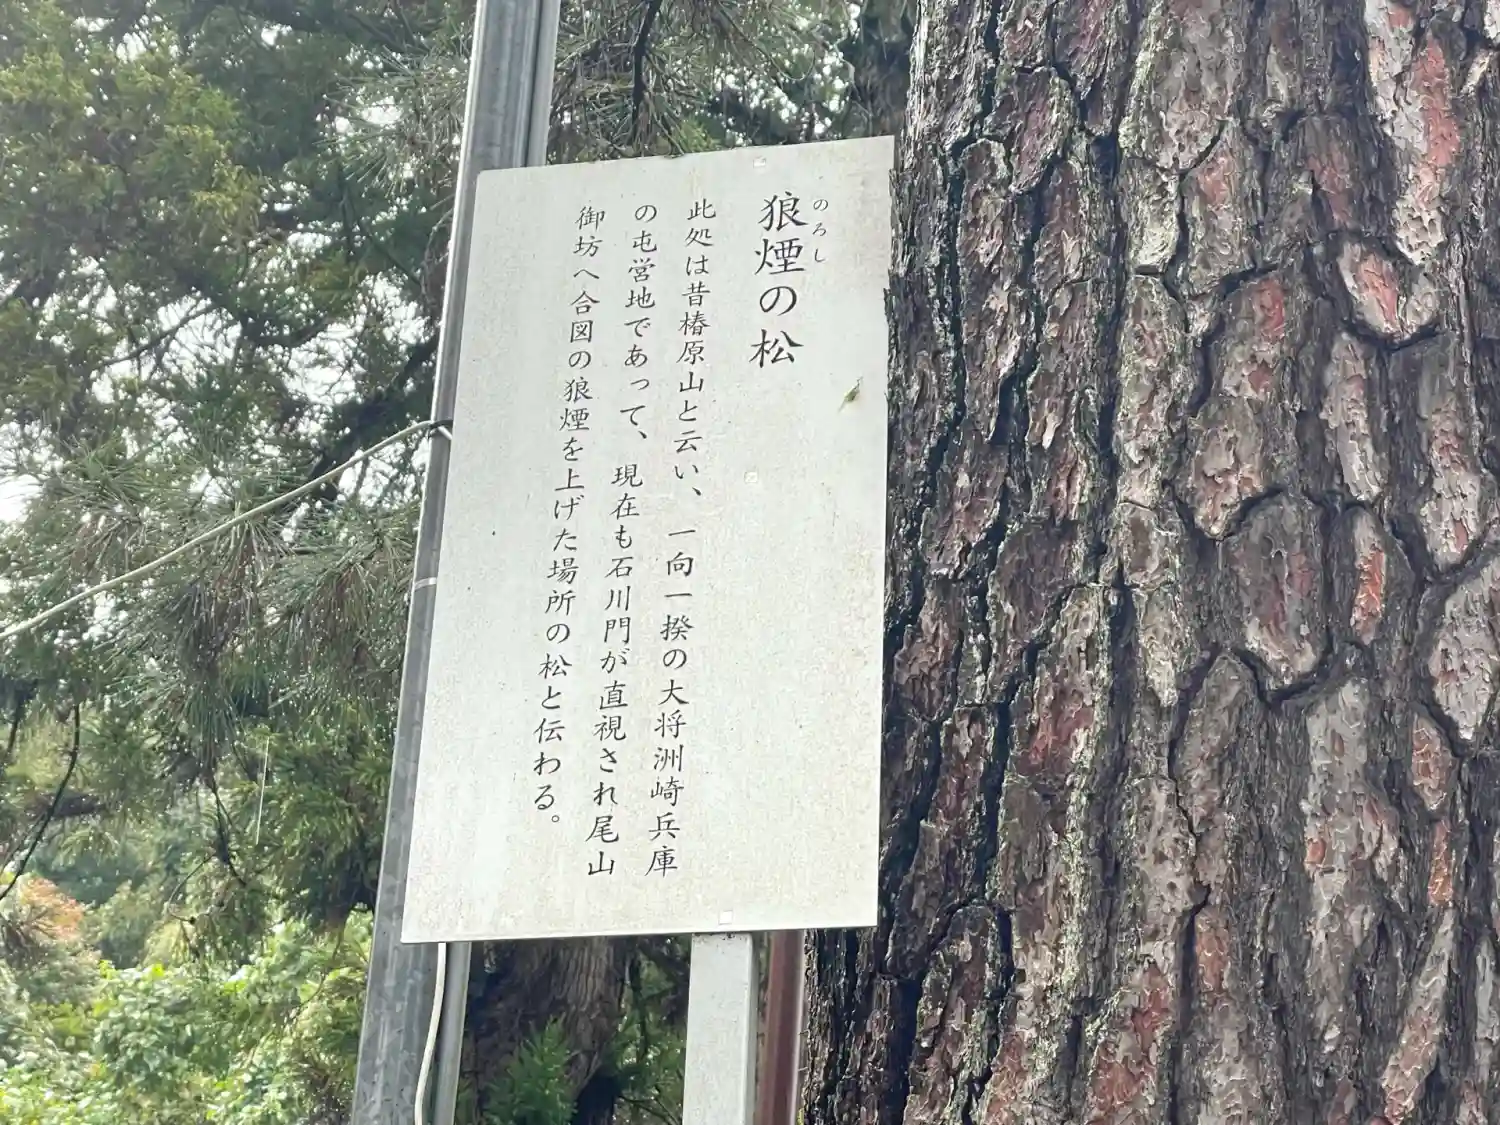 狼煙の松
のろし
此処は昔椿原山と云い、一向一揆の大将洲崎兵庫
の屯営地であって、現在も石川門が直視され尾山
御坊へ合図の狼煙を上げた場所の松と伝わる。